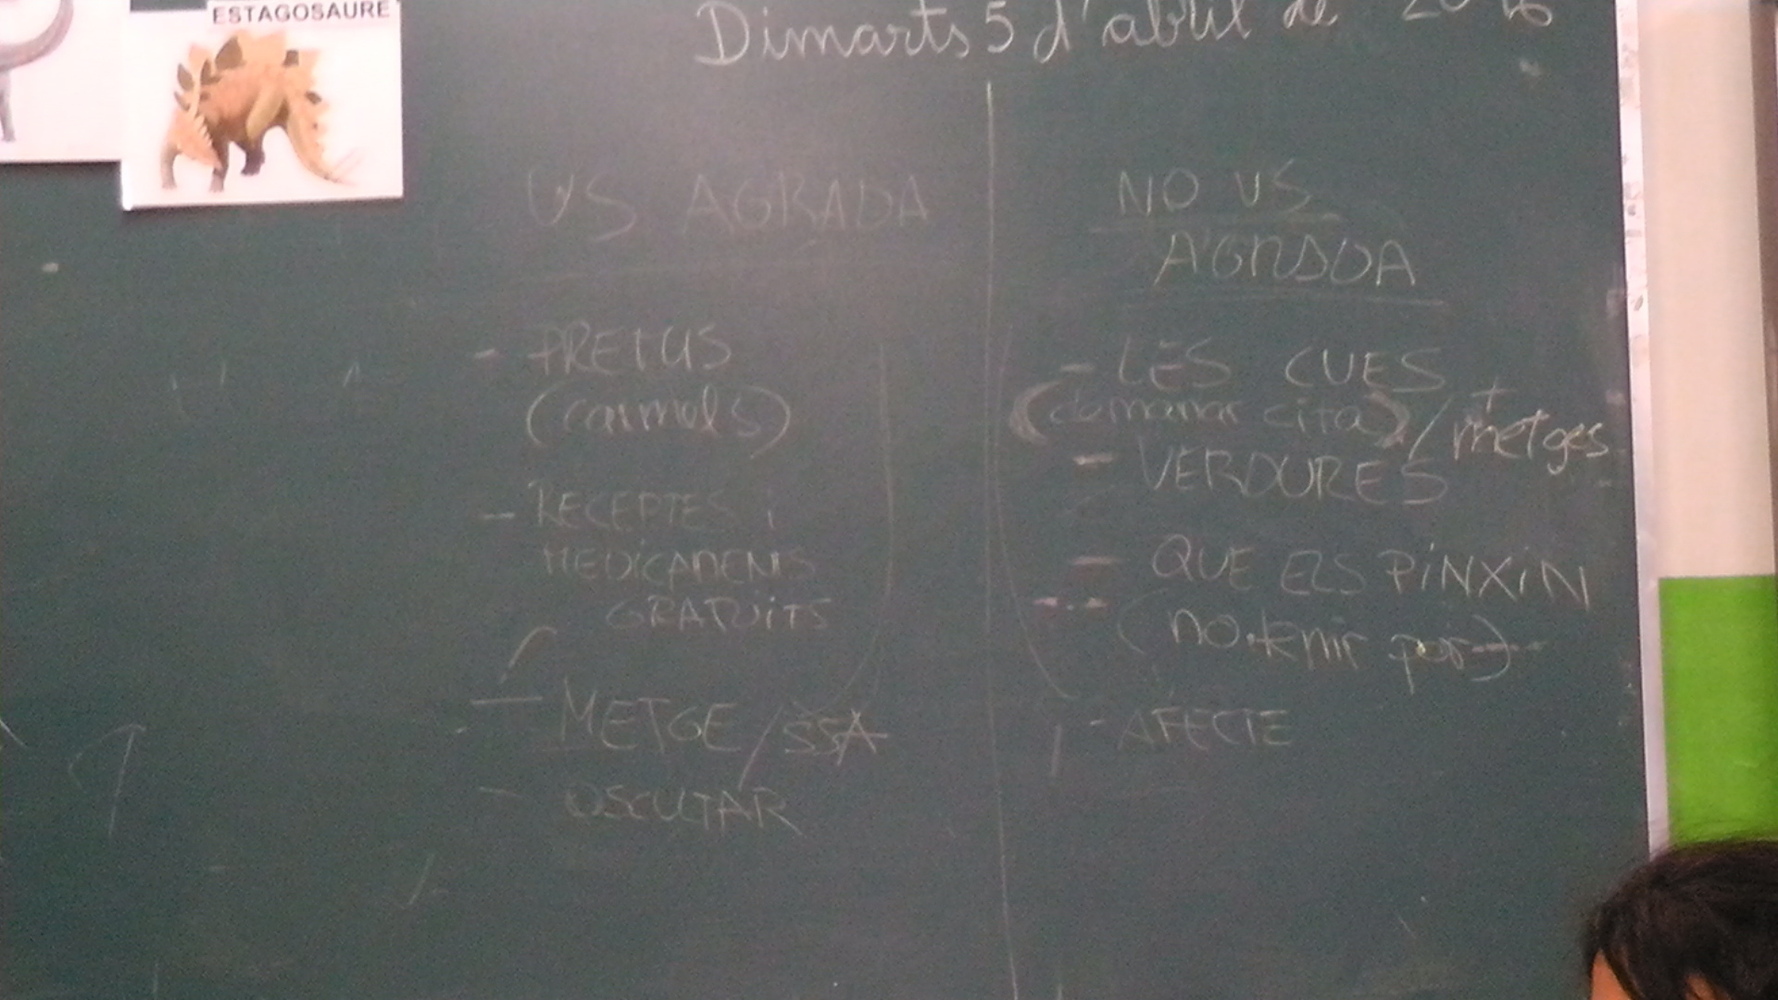 ESTAGOSAURE
Dimarts 5 d'abril de 2016
US AGRADA
- PRETUS
(carmels)
- RECEPTES i
MEDICAMENTS
GRATUITS
- METGE/SSA
- OSCULTAR
NO US
AGRADA
- LES CUES
(demanar cita) / + metges
- VERDURES
- QUE ELS PINXIN
(no tenir por)
- AFECTE